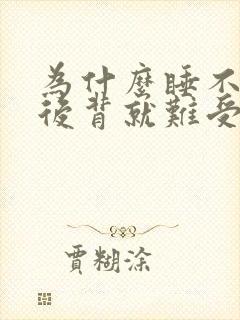 為什麼睡不
後背就難受
賈糊涂